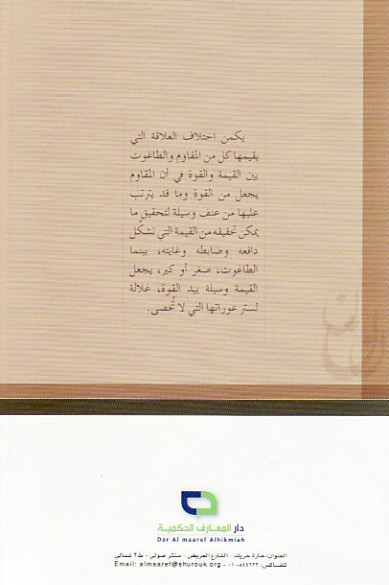 يكمن اختلاف العلاقة التي
يقيمها كل من المقاوم والطاغوت
بين القيمة والقوة في أن المقاوم
يجعل من القوة وما قد يترتب
عليها من عنف وسيلة لتحقيق ما
يمكن تحقيقه من القيمة التي تشكّل
دافعه وضابطه وغايته، بينما
الطاغوت، صغر أو كبر، يجعل
القيمة وسيلة بيد القوة، غلالة
لستر عوراتها التي لا تُحصى.
دار المعارف الحكمية
Dar Al maaref Alhikmiah
العنوان: حارة حريك - الشارع العريض - سنتر صولي - ط٢ شمالي
تلفاكس: ٥٤٤٦٢٢-٠١ - Email: almaaref@shurouk.org